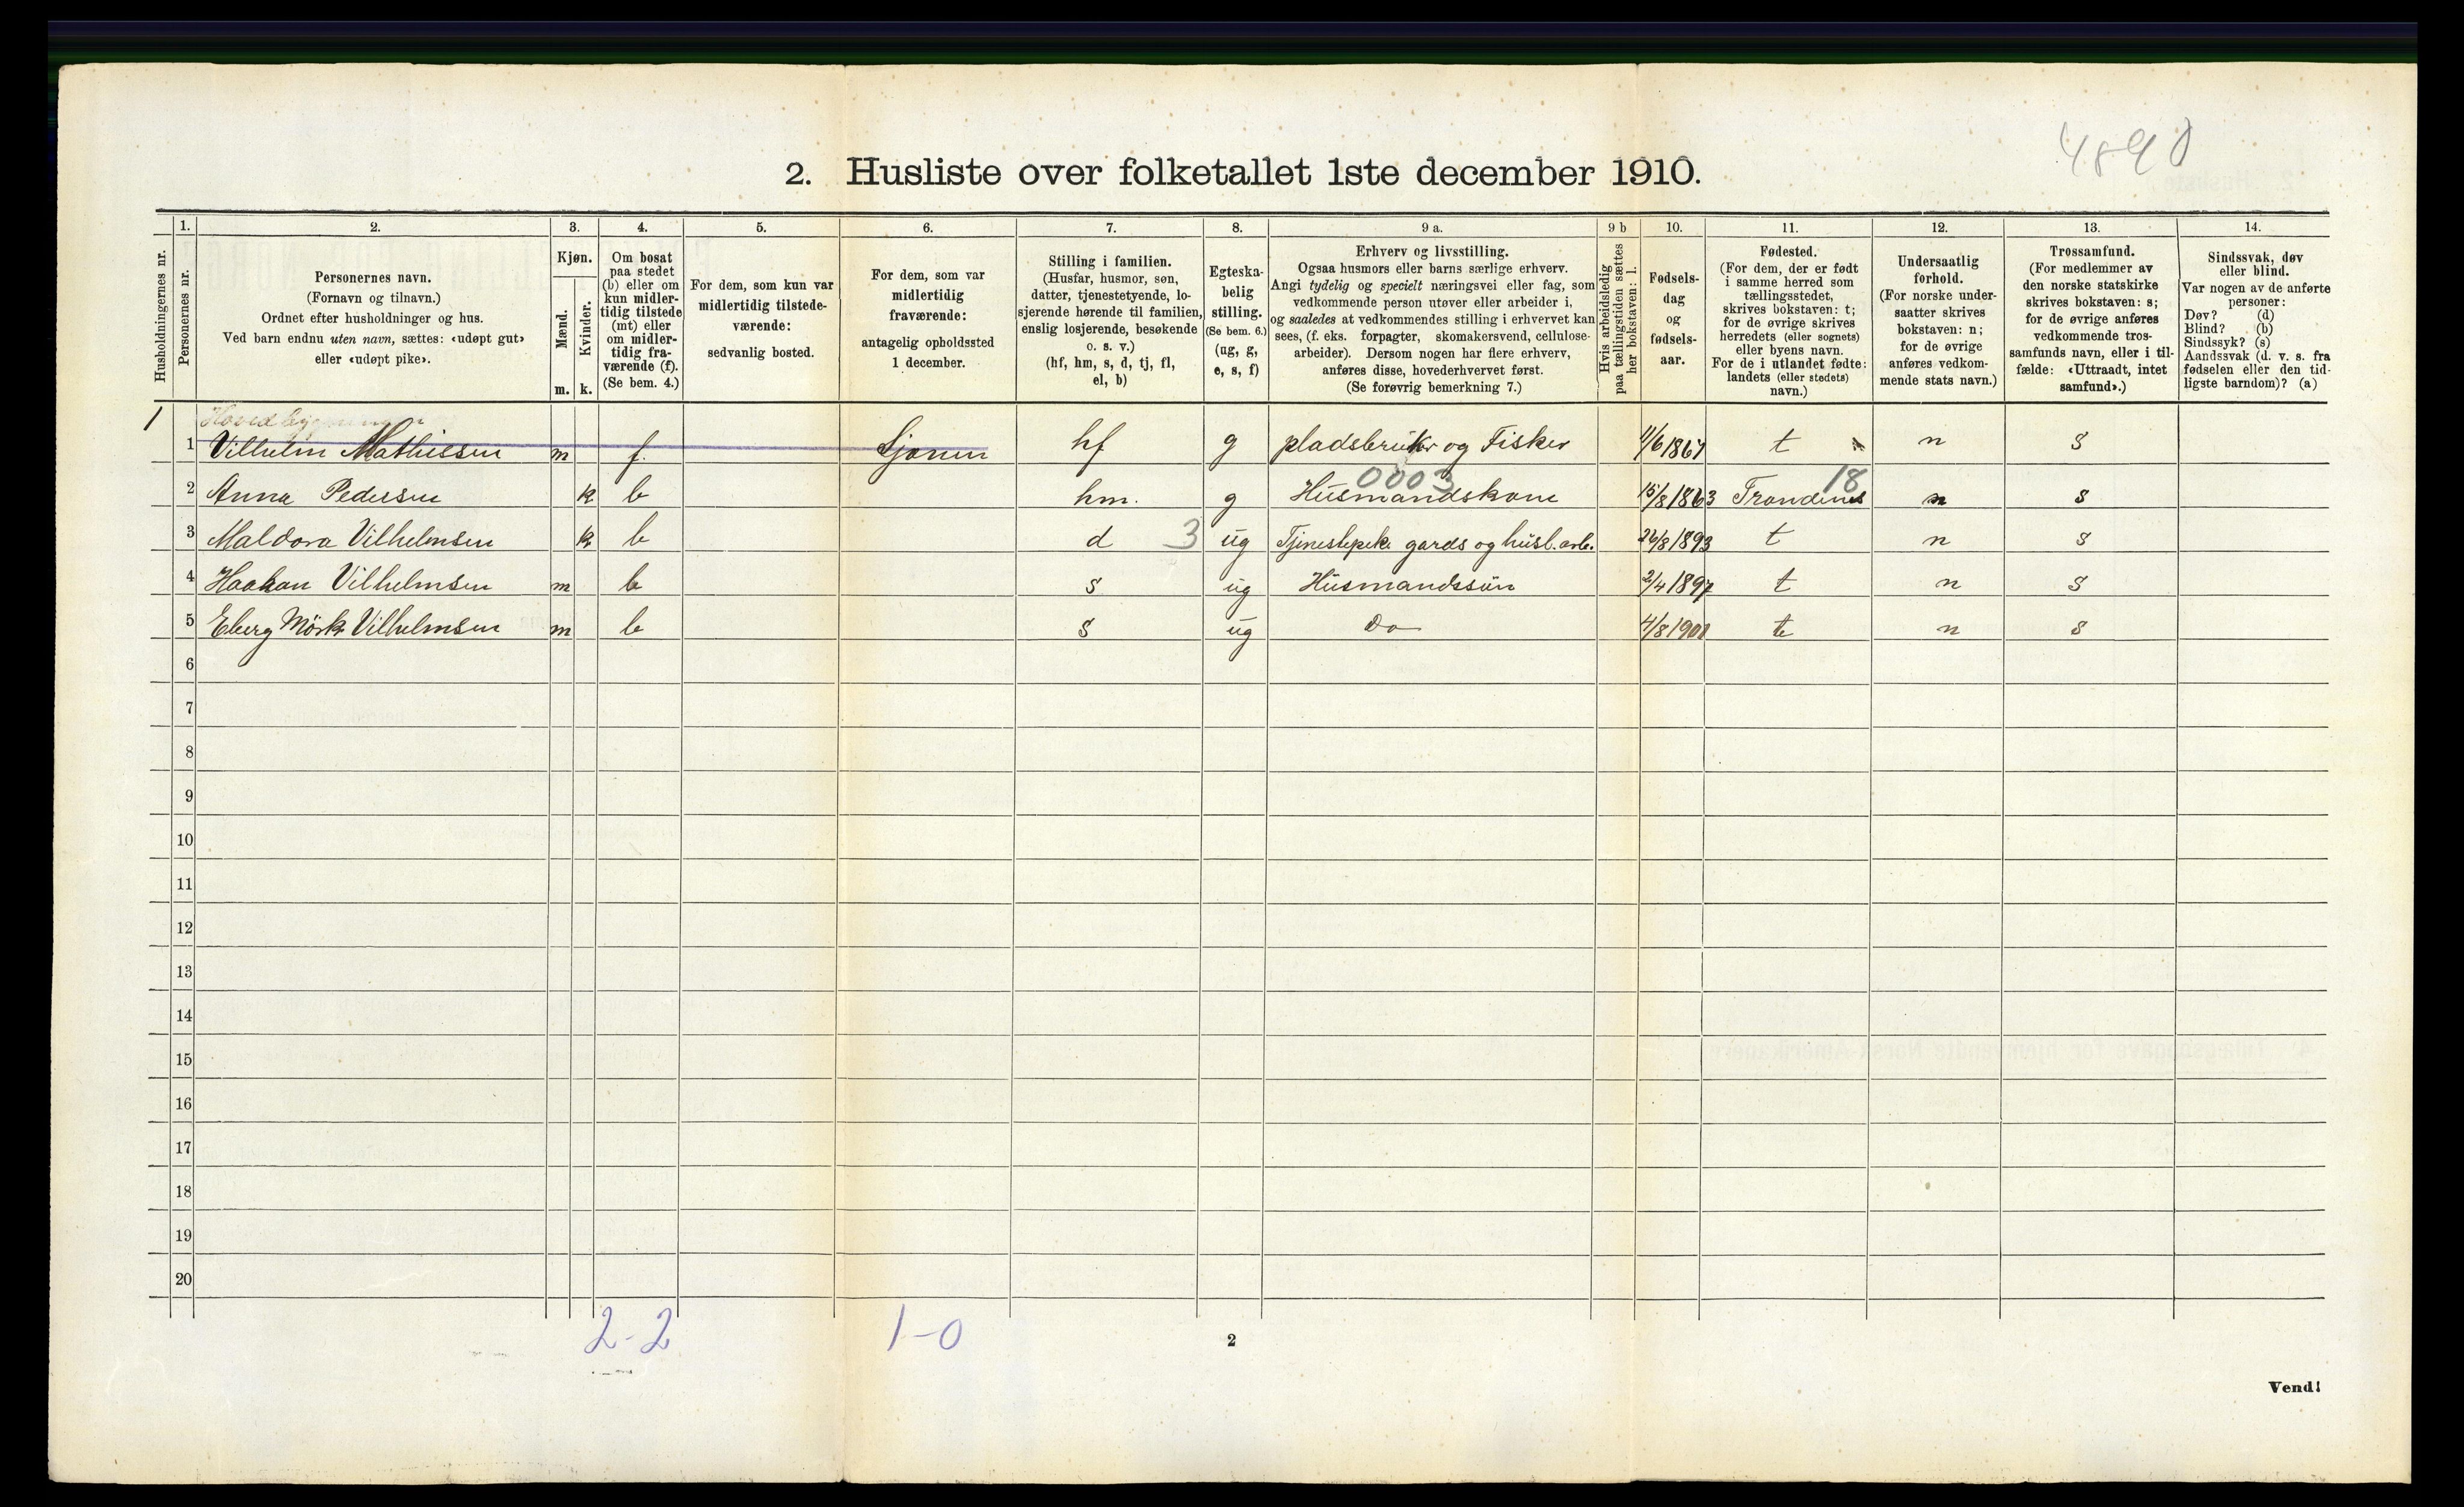 4890
2. Husliste over folketallet 1ste december 1910.
Husholdningernes nr.
1.
Personernes nr.
2.
Personernes navn.
(Fornavn og tilnavn.)
Ordnet efter husholdninger og hus.
Ved barn endnu uten navn, sættes: «udøpt gut»
eller «udøpt pike».
3.
Kjøn.
Mænd.
Kvinder.
m. k.
4.
Om bosat
paa stedet
(b) eller om
kun midler-
tidig tilstede
(mt) eller
om midler-
tidig fra-
værende (f).
(Se bem. 4.)
5.
For dem, som kun var
midlertidig tilstede-
værende:
sedvanlig bosted.
6.
For dem, som var
midlertidig
fraværende:
antagelig opholdssted
1 december.
7.
Stilling i familien.
(Husfar, husmor, søn,
datter, tjenestetyende, lo-
sjerende hørende til familien,
enslig losjerende, besøkende
o. s. v.)
(hf, hm, s, d, tj, fl,
el, b)
8.
Egteska-
belig
stilling.
(Se bem. 6.)
(ug, g,
e, s, f)
9 a.
Erhverv og livsstilling.
Ogsaa husmors eller barns særlige erhverv.
Angi tydelig og specielt næringsvei eller fag, som
vedkommende person utøver eller arbeider i,
og saaledes at vedkommendes stilling i erhvervet kan
sees, (f. eks. forpagter, skomakersvend, cellulose-
arbeider). Dersom nogen har flere erhverv,
anføres disse, hovederhvervet først.
(Se forøvrig bemerkning 7.)
9 b
Hvis arbeidsledig
paa tællingstiden sættes
her bokstaven: l.
10.
Fødsels-
dag
og
fødsels-
aar.
11.
Fødested.
(For dem, der er født
i samme herred som
tællingsstedet,
skrives bokstaven: t;
for de øvrige skrives
herredets (eller sognets)
eller byens navn.
For de i utlandet fødte:
landets (eller stedets)
navn.)
12.
Undersaatlig
forhold.
(For norske under-
saatter skrives
bokstaven: n;
for de øvrige
anføres vedkom-
mende stats navn.)
13.
Trossamfund.
(For medlemmer av
den norske statskirke
skrives bokstaven: s;
for de øvrige anføres
vedkommende tros-
samfunds navn, eller i til-
fælde: «Uttraadt, intet
samfund».)
14.
Sindssvak, døv
eller blind.
Var nogen av de anførte
personer:
Døv? (d)
Blind? (b)
Sindssyk? (s)
Aandssvak (d. v. s. fra
fødselen eller den tid-
ligste barndom)? (a)
Hovedbygningen
1 1 Vilhelm Mathissen m f. Sjøen hf g pladsbruker og Fisker 11/6 1867 t n s
0003 18
2 Anna Pedersen k b hm. g Husmandskone 15/8 1863 Trondenes n s
3 Maldora Vilhelmsen k b d 3 ug Tjenestepike gards og husl. arb. 26/8 1893 t n s
4 Haakon Vilhelmsen m b s ug Husmandssøn 2/4 1897 t n s
5 Eberg Mörk Vilhelmsen m b s ug Do 4/8 1901 t n s
6
7
8
9
10
11
12
13
14
15
16
17
18
19
20
2-2 1-0
2
Vend!